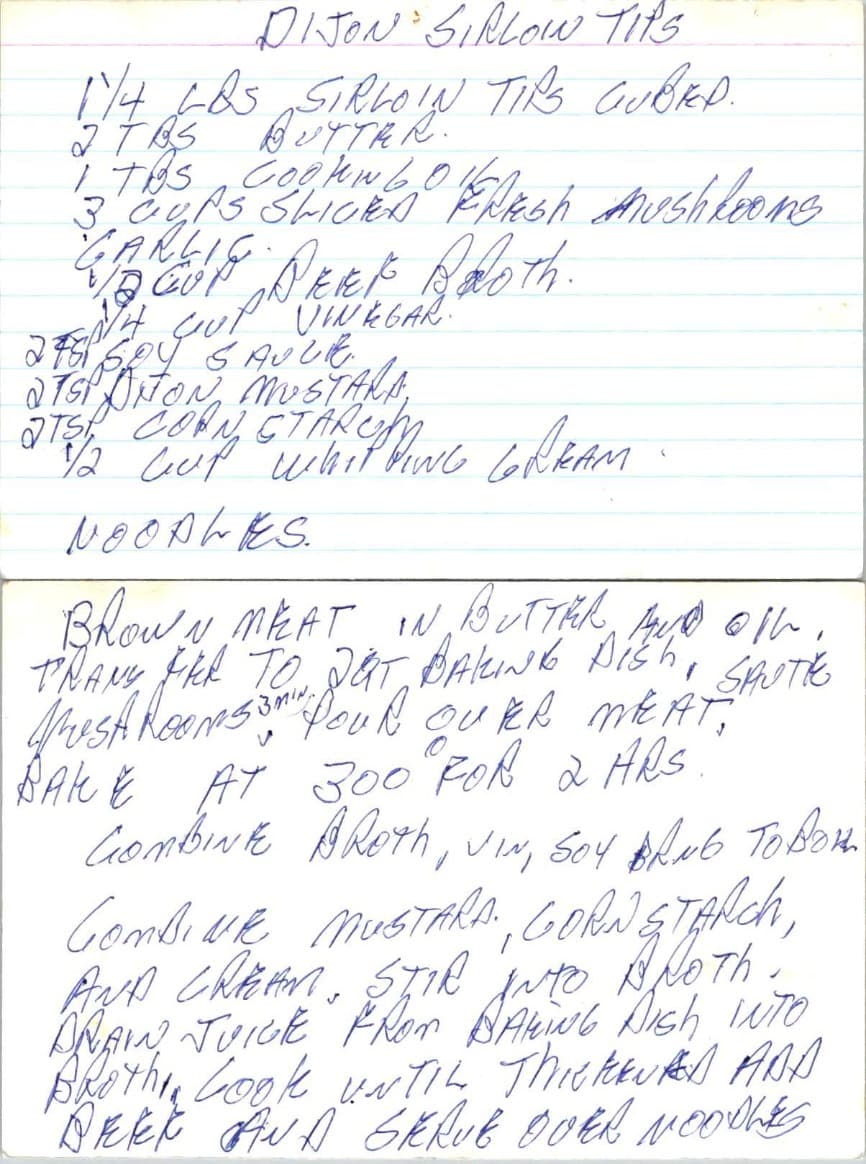 DIJON SIRLOIN TIPS
1 1/4 LBS SIRLOIN TIPS CUBED.
2 TBS BUTTER.
1 TBS COOKING OIL
3 CUPS SLICED FRESH MUSHROOMS
GARLIC.
1/2 CUP BEEF BROTH.
1/4 CUP VINEGAR.
2 TSP SOY SAUCE.
2 TSP DIJON MUSTARD,
2 TSP CORN STARCH
1/2 CUP WHIPPING CREAM.
NOODLES.
BROWN MEAT IN BUTTER AND OIL.
TRANSFER TO 2QT BAKING DISH. SAUTE
MUSHROOMS 3 MIN, POUR OVER MEAT.
BAKE AT 300° FOR 2 HRS.
COMBINE BROTH, VIN, SOY BRNG TO BOIL
COMBINE MUSTARD, CORN STARCH,
AND CREAM. STIR INTO BROTH.
DRAIN JUICE FROM BAKING DISH INTO
BROTH, COOK UNTIL THICKENED ADD
BEEF AND SERVE OVER NOODLES